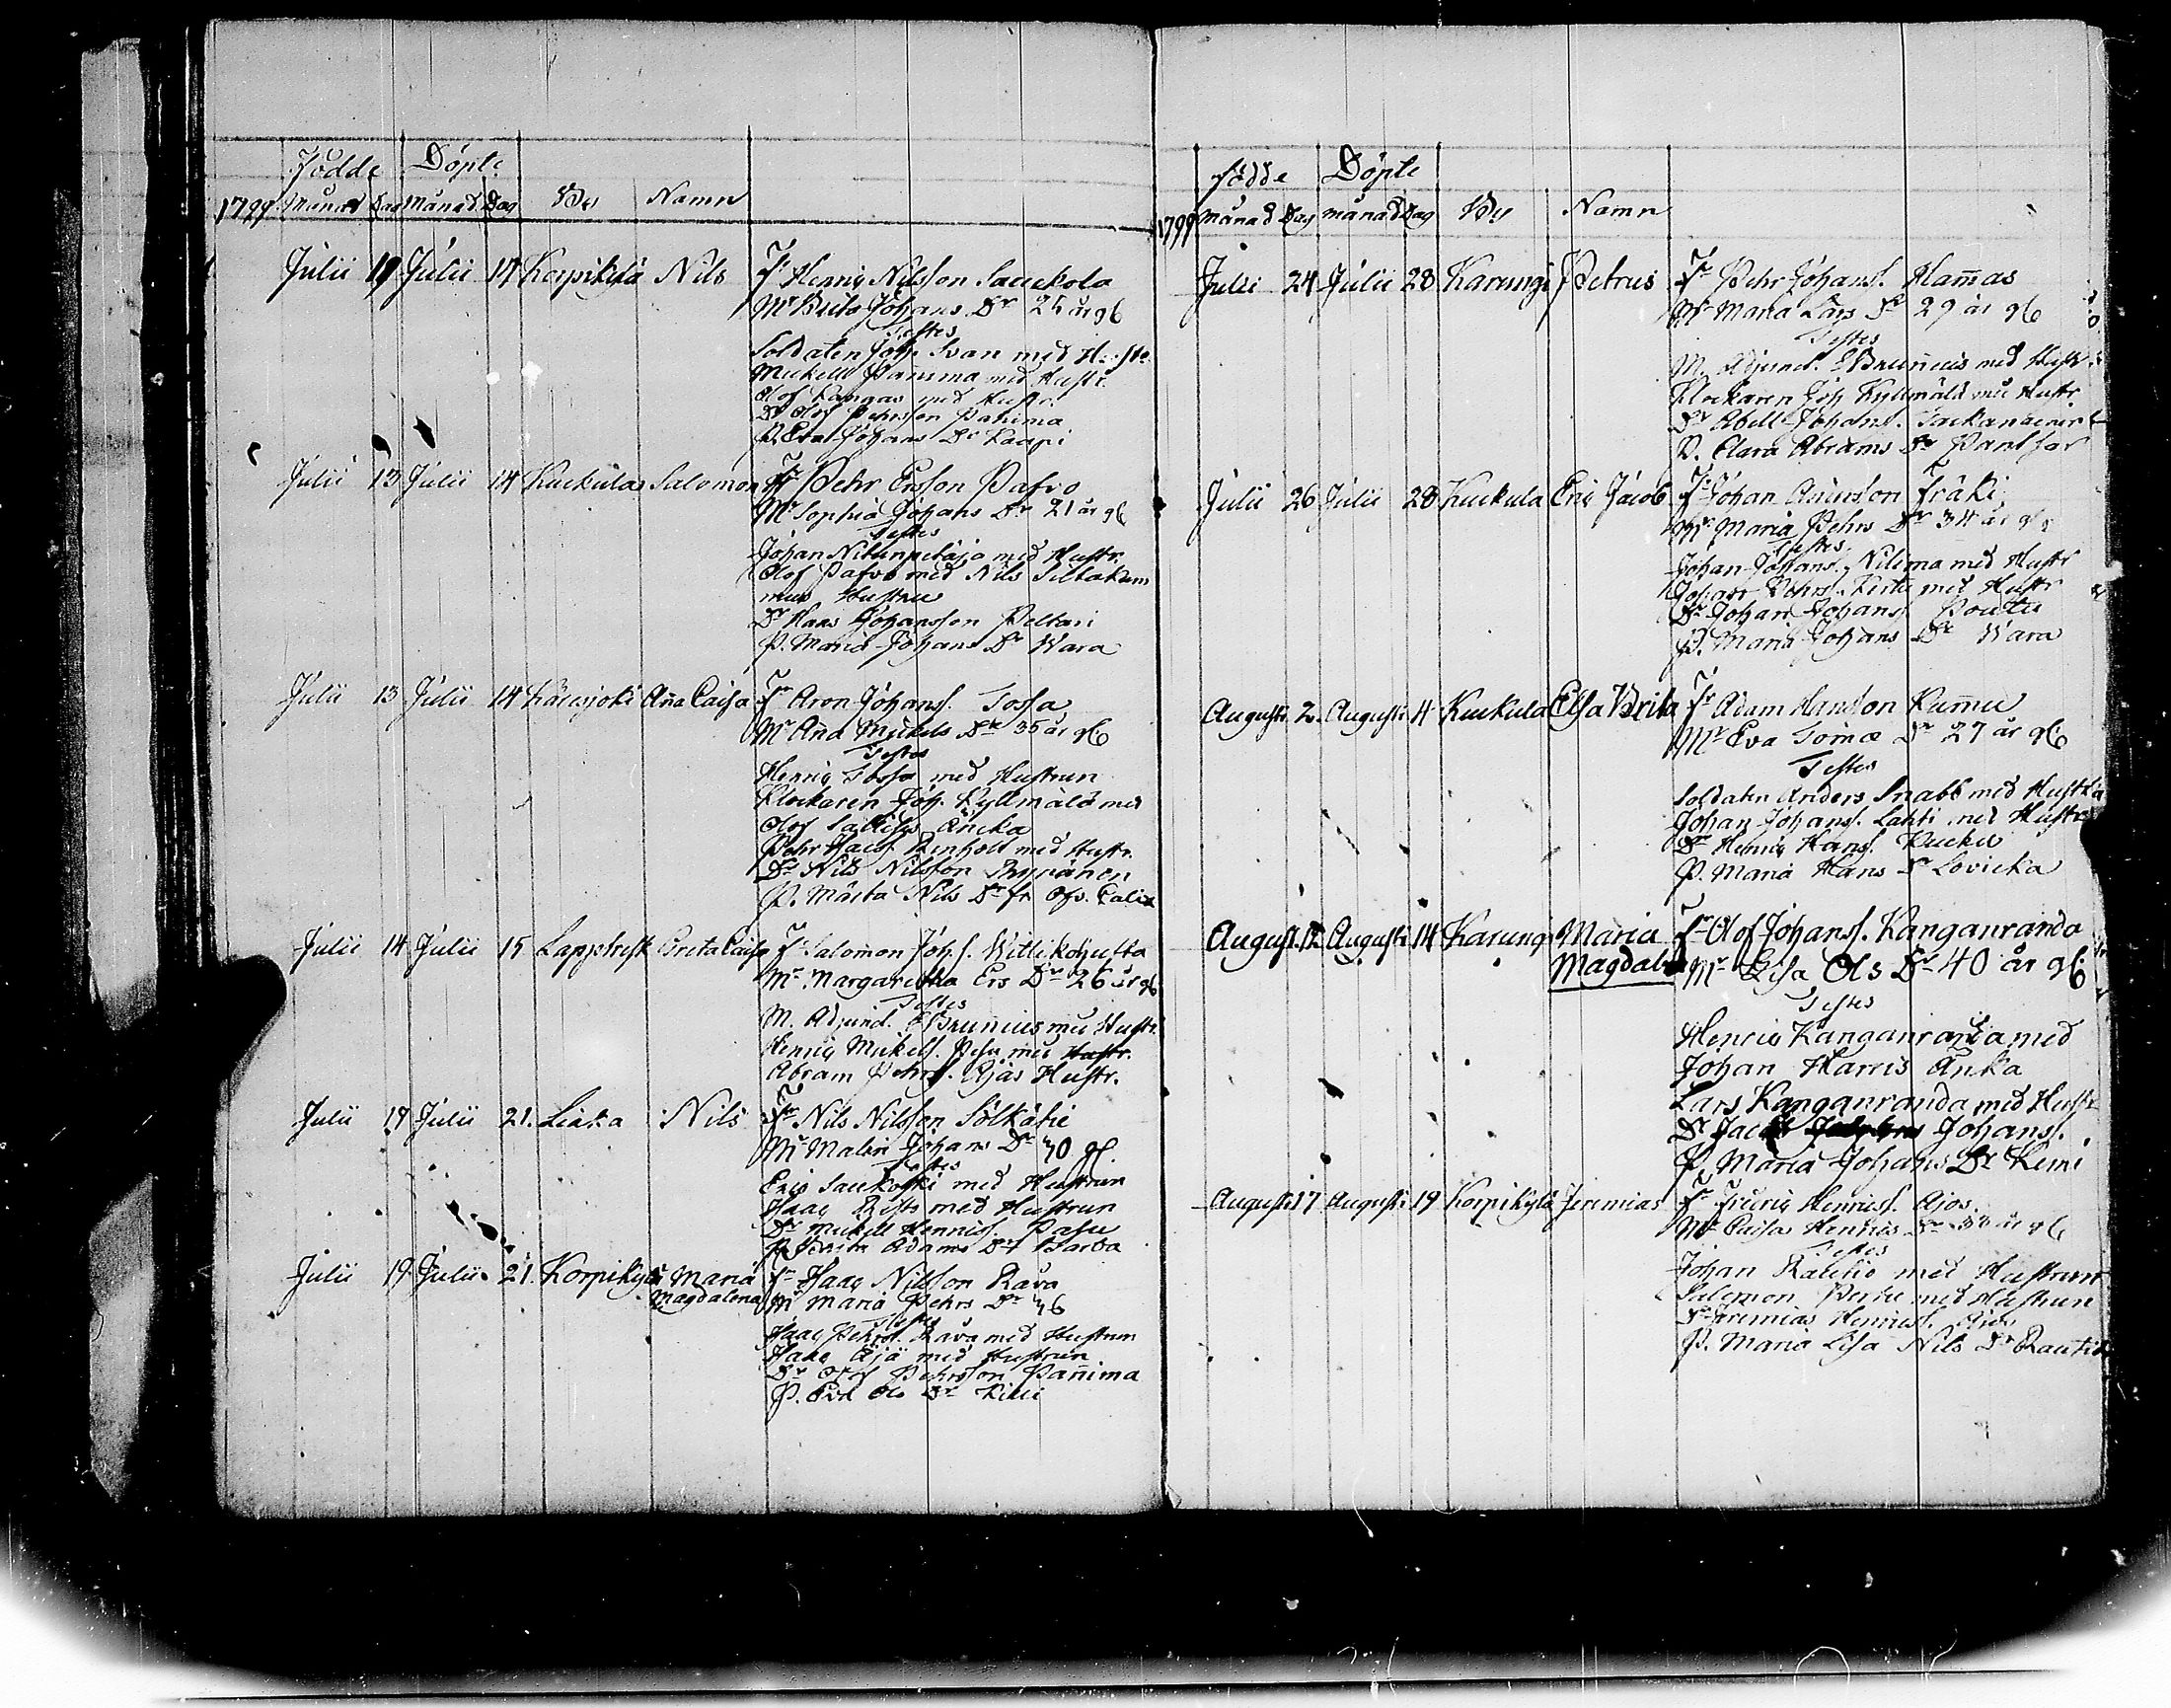 Födde Döpte
1799 Månad Dag Månad Dag By Namn
Julii 11 Julii 14 Korpikylä Nils Fr Henric Nilsson Sauckola
Mr Brita Johans Dr 25 år g6
Testes
Soldaten Joh. Svan med H:sto
Mickell Pannima med Hustr.
Olof Kangas med Hustr.
Dr Olof Pehrsson Pahima
P. Eva Johans Dr Kaapi
Julii 13 Julii 14 Kuckula Salomon Fr Pehr Ersson Pafvo
Mr Sophia Johans Dr 21 år g6
Testes
Johan Nitunpetäjä med Hustr.
Olof Pafvo med Nils Sillakum
mus Hustru
Dr Hans Johansson Peltari
P. Maria Johans Dr Wara
Julii 13 Julii 14 Karsjoki Aña Caisa Fr Aron Johanss. Tossa
Mr Aña Mickels Dr 35 år g6
Testes
Henric Tossa med Hustrun
Klockaren Joh. Kyllmälä med
Olof Encka
Pehr Jacs. Renholt med Hustr.
Dr Nils Nilsson Thyränen
P. Märta Nils Dr fr Öfv. Calix
Julii 14 Julii 15 Lappträsk Brita Caisa Fr Salomon Johs. Wittikohulta
Mr Margaretha Ers Dr 26 år g6
Testes
M. Adjunct. E Brunnius med Hustr.
Henric Mickels. Pesu med Hustr.
Abram Pehrs. Ajas Hustr.
Julii 19 Julii 21. Liaka Nils Fr Nils Nilsson Sölkätie
Mr Malin Johans Dr 40 g6
Testes
Eric Saukoski med Hustrun
Isaac Rists med Hustrun
Dr Mickell Henrics. Pasu
P. Brita Adams Dr Barba
Julii 19 Julii 21. Korpikylä Maria Fr Isaac Nilsson Rava
Magdalena Mr Maria Pehrs Dr 46
Testes
Isaac Pehrss. Rava med Hustrun
Isaac Äjä med Hustrun
Dr Olof Pehrsson Pañima
P. Eva Ols Dr Killi
födde Döpte
1799 månad Dag månad Dag By Namn
Julii 24 Julii 28 Karungi Petrus Fr Pehr Johanss. Ham̄as
Mr Maria Lars Dr 29 år g6
Testes
M. Adjunct. E Brun̄ius med Hustr.
Klockaren Joh Kyllmälä med Hustr.
Dr Abell Johans.
P. Clara Abrams Dr
Julii 26 Julii 28 Kuckula Eric Jacob Fr Johan Andersson Fräki
Mr Maria Pehrs Dr 34 år g6
Testes
Johan Johans. Nilima med Hustr
Johan Pehrs. Kirta med Hustr
Dr Johan Johans. Poutu
P. Maria Johans Dr Wara
Augusti 2. Augusti 4 Kuckula Elsa Brita Fr Adam Hansson Kum̄u
Mr Eva Tomæ Dr 27 år g6
Testes
Soldaten Anders Snabb med Hustru
Johan Johanss. Lahti med Hustru
Dr Henric Hanss. Kucku
P. Maria Hans Dr Lovicka
August. 12 Augusti 14 Karungi Maria Fr Olof Johanss. Kanganranda
Magdalena Mr Lisa Ols Dr 40 år g6
Testes
Henric Kanganranda med
Johan Harris Änka
Lars Kanganranda med Hustr
Dr Jacob Johanss.
P. Maria Johans Dr Kemi
August. 17 August. 19 Korpikylä Jeremias Fr Henrics. Ajos
Mr Caisa Henrics Dr år g6
Testes
Johan Rautio med Hustrun
Salomon med Hustrun
Dr Jeremias Henrics. Ajos
P. Maria Lisa Nils Dr Rautio